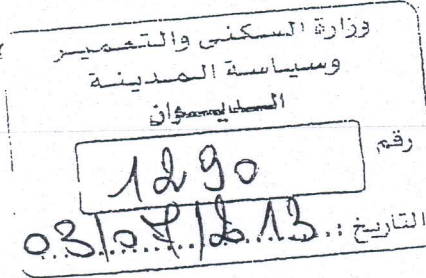 وزارة السكنى والتعمير
وسياسة المدينة
الديوان
رقم 1290
التاريخ : 03/07/213